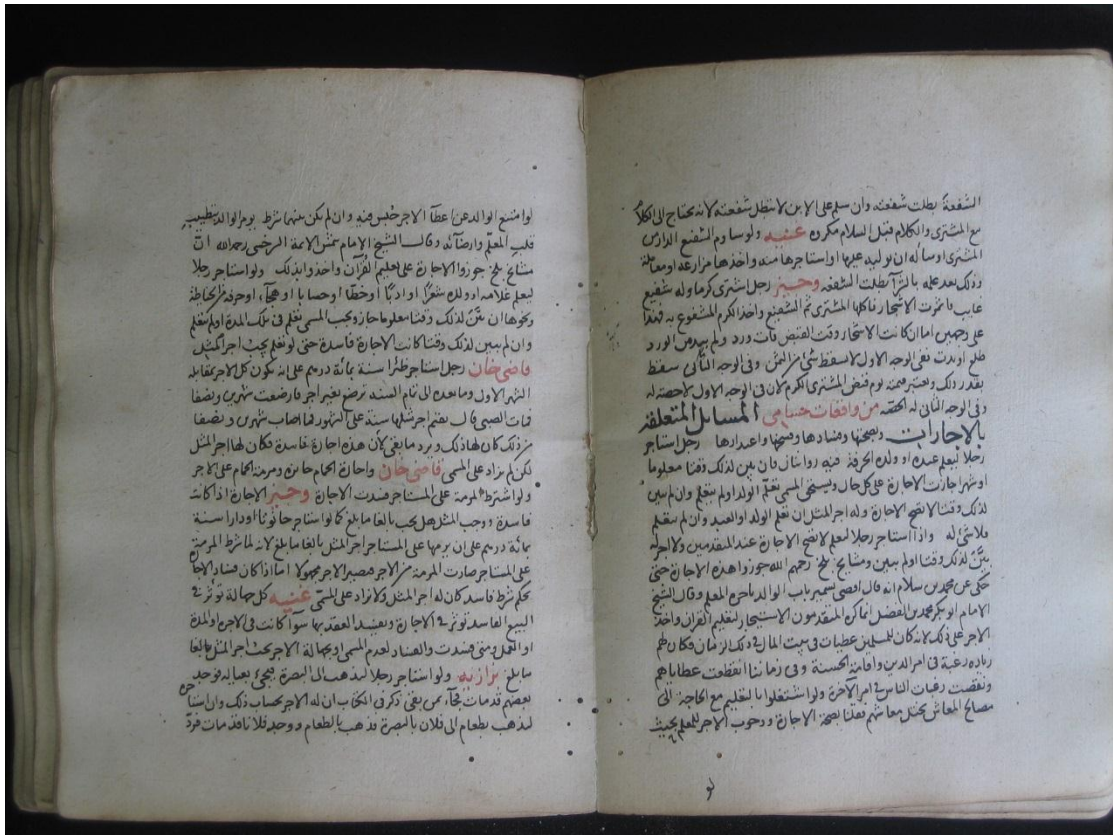 الشفعة بطلت شفعته وان سلم على الابن لا تبطل شفعته لانه يحتاج الى الكلام
مع المشترى والكلام قبل السلام مكروه غنيه ولو ساوم الشفيع الدار من
المشترى او سأله ان يوليه عليها او استاجرها منه واخذها مزارعة او معاملة
وذلك بعد علمه بالشرآ بطلت الشفعة وجيز رجل اشترى كرما وله شفيع
غايب فاثمرت الاشجار فاكلها المشترى ثم الشفيع واخذ الكرم المشفوع به فهذا
على وجهين اما ان كانت الاشجار وقت القبض ورد ولم يبد من الورد
طلع او بدت ففى الوجه الاول لا يسقط شئ من الثمن وفى الوجه الثانى سقط
بقدر ذلك ويعتبر قيمته يوم قبض المشترى الكرم لان فى الوجه الاول لا حصة له
وفى الوجه الثانى له الحصة من واقعات حسامى المسايل المتعلقة
بالاجارات وصحتها وفسادها وفسخها واعذارها رجل استاجر
رجلا ليعلم عبده او ولده الحرفة فيه روايتان فان بين لذلك وقتا معلوما
او شهرا جازت الاجارة على كل حال ويستحق المسمى تعلم الولد او لم يتعلم وان لم يبين
لذلك وقتا لا تصح الاجارة وله اجر المثل ان تعلم الولد او العبد وان لم يتعلم
فلا شئ له واذا استاجر رجلا ليعلم لا تصح الاجارة عند المتقدمين ولا اجر له
بين لذلك وقتا او لم يبين ومشايخ بلخ رحمهم الله جوزوا هذه الاجارة حتى
حكى عن محمد بن سلام انه قال اقضى بتسمير باب الوالد باجرة المعلم وقال الشيخ
الامام ابو بكر محمد بن الفضل انما كره المتقدمون الاستيجار لتعليم القران واخذ
الاجر على ذلك لانه كان للمعلمين عطيات فى بيت المال فى ذلك الزمان وكان لهم
زيادة رغبة فى امر الدين واقامة الحسنة وفى زماننا انقطعت عطاياهم
ونقصت رغبات الناس فى امر الآخرة ولو اشتغلوا بالتعليم مع الحاجة الى
مصالح المعاش يختل معاشهم فقلنا بصحة الاجارة ووجوب الاجر للمعلم بحيث
لو
لو امتنع الوالد عن اعطآ الاجر حبس فيه وان لم يكن بينهما شرط يومر الوالد بتطييب
قلب المعلم وارضائه وقال الشيخ الامام شمس الائمة السرخسى رحمه الله ان
مشايخ بلخ جوزوا الاجارة على تعليم القرآن واخذوا بذلك ولو استاجر رجلا
ليعلم غلامه او ولده شعرا او ادبا او خطا او حسابا او هجآء او حرفة من الخياطة
ونحوها ان بين لذلك وقتا معلوما جاز ويجب المسمى تعلم فى تلك المدة او لم يتعلم
وان لم يبين لذلك وقتا كانت الاجارة فاسدة حتى لو تعلم يجب اجر المثل
قاضى خان رجل استاجر ظئرا سنة بمائة درهم على انه يكون كل الاجر بمقابلة
الشهر الاول وما بعده الى تمام السنة ترضع بغير اجر فارضعت شهرين ونصفا
فمات الصبى قال يقسم اجر مثلها سنة على الشهور فما اصاب شهرين ونصفا
من ذلك كان لها ذلك ويرد ما بقى لان هذه اجارة فاسدة فكان لها اجر المثل
لكن لم يزاد على المسمى قاضى خان واجارة الحمام جايزة ومرمة الحمام على الاجر
ولو اشترط المرمة على المستاجر فسدت الاجارة وجيز الاجارة اذا كانت
فاسدة ووجب المثل هل يجب بالغا ما بلغ كما لو استاجر حانوتا او دارا سنة
بمائة درهم على ان يرمها على المستاجر اجر المثل بالغا ما بلغ لانه لما شرط المرمة
على المستاجر صارت المرمة من الاجر فيصير الاجر مجهولا اما اذا كان فساد الاجارة
بحكم شرط فاسد كان له اجر المثل ولا يزاد على المسمى غنيه كل جهالة تؤثر فى
البيع الفاسد تؤثر فى الاجارة وتفسد العقد بها سوآ كانت فى الاجرة او المدة
او العمل ومتى فسدت والفساد لعدم المسمى او بجهالة الاجر يجب اجر المثل بالغا
ما بلغ بزازيه ولو استاجر رجلا ليذهب الى البصرة فيجئ بعياله فوجد
بعضهم قد مات فجآء بمن بقى ذكر فى الكتاب ان له الاجر بحساب ذلك وان استاجره
ليذهب بطعام الى فلان بالبصرة فذهب بالطعام ووجد فلانا قد مات فرد